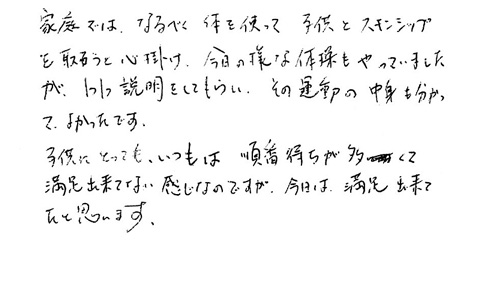 家庭では、なるべく体を使って子供とスキンシップ
を取ろうと心掛け、今日の様な体操もやっていました
が、1つ1つ説明をしてもらい、その運動の中身も分かっ
て、よかったです。
子供にとっても、いつもは順番待ちが多くて
満足出来てない感じなのですが、今日は、満足出来て
たと思います。